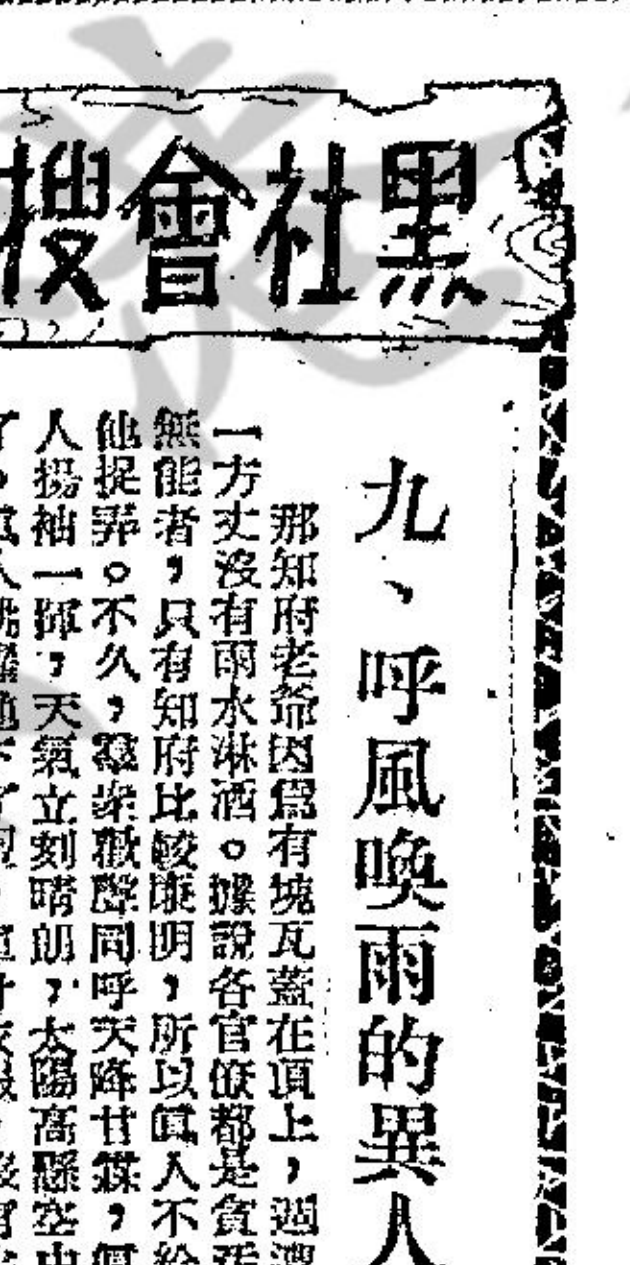 黑社會搜
九、呼風喚雨的異人
那知府老爺因爲有塊瓦蓋在頂上，週
一方丈沒有雨水淋洒。據說各官衙都是貪
無能者，只有知府比較賢明，所以眞人不給
他捉弄。不久，羣衆歡聲同呼天降甘霖，眞
人揚袖一揮，天氣立刻晴朗，太陽高懸空中